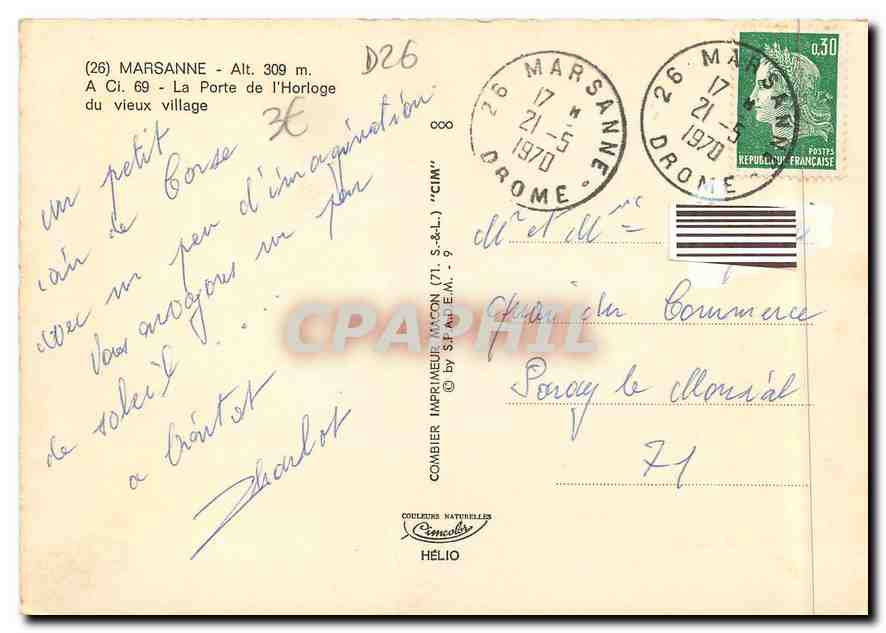 (26) MARSANNE - Alt. 309 m.
A Ci. 69 - La Porte de l'Horloge
du vieux village
D26
3€
un petit
air de Corse
avec un peu d'imagination
Vous envoyons un peu
de soleil ....
a bientot
Charlot
COMBIER IMPRIMEUR MACON (71. S.-&-L.) "CIM"
© by S.P.A.D.E.M. - 9
COULEURS NATURELLES
Cimcolor
HÉLIO
26 MARSANNE
17 *
21-5
1970
DROME
26 MARSANNE
17 *
21-5
1970
DROME
0,30
POSTES
REPUBLIQUE FRANÇAISE
Mr et Mme
quai du Commerce
Paray le Monial
71
CPAPHIL